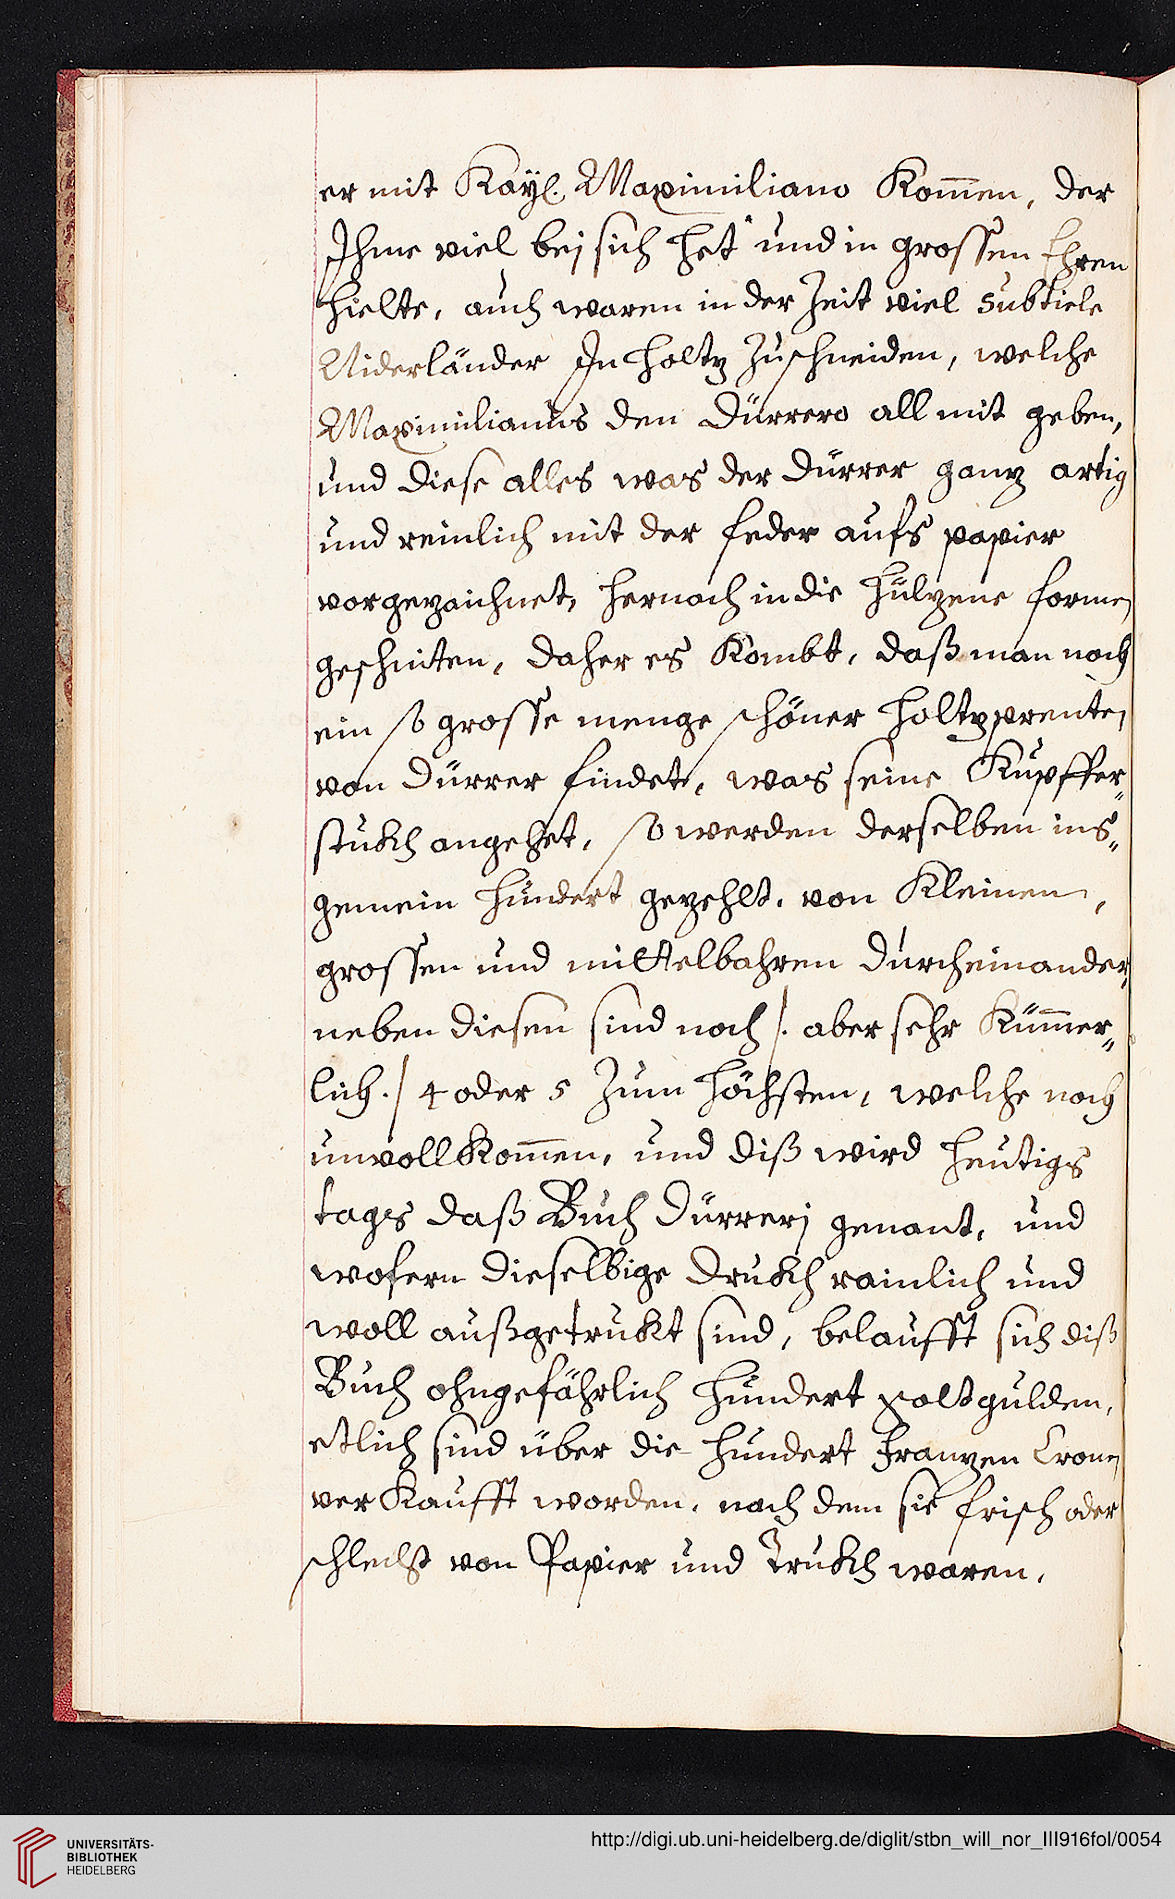 er mit Kaÿl. Maximiliano Kom̄en, der
Ihme viel bej sich het und in grossen Ehren
hielte, auch waren in der Zeit viel subtiele
Niderländer In holtz Zuschneiden, welche
Maximilianus den Dürrero all mit geben,
und diese alles was der Dürrer ganz artig
und reinlich mit der feder aufs papier
vorgezaichnet, hernach in die hülzene forme
geschniten, daher es Kombt, daß man noch
ein so grosse menge schöner holtzprente
von Dürrer findet, was seine Kupffer„
stukh angehet, so werden derselben ins„
gemein hundert gezehlt. von Kleinen,
grossen und mittelbahren durcheinander,
neben diesen sind noch /. aber sehr Küm̄er„
lich. / 4 oder 5 Zum höchsten, welche noch
unvollKom̄en, und diß wird heutigs
tages daß Buch Dürrerj genant, und
wofern dieselbige drukh rainlich und
woll außgetrukt sind, belaufft sich diß
Buch ohngefährlich hundert goltgulden,
etlich sind über die hundert franzen Crone
verKaufft worden, nach dem sie frisch oder
schlechst von Papier und Trukh waren.
UNIVERSITÄTS-
BIBLIOTHEK
HEIDELBERG
http://digi.ub.uni-heidelberg.de/diglit/stbn_will_nor_III916fol/0054